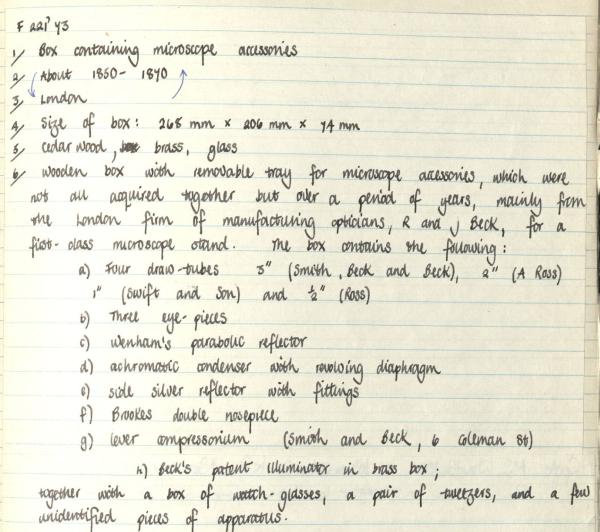 F 221' Y3
1/ Box containing microscope accessories
2/ About 1850 - 1870
3/ London
4/ Size of box: 268 mm x 206 mm x 74 mm
5/ cedar wood, brass, glass
6/ wooden box with removable tray for microscope accessories, which were
not all acquired together but over a period of years, mainly from
the London firm of manufacturing opticians, R and J Beck, for a
first-class microscope stand. The box contains the following:
a) Four draw-tubes 3" (Smith, Beck and Beck), 2" (A Ross)
1" (Swift and Son) and ½" (Ross)
b) Three eye-pieces
c) Wenham's parabolic reflector
d) achromatic condenser with revolving diaphragm
e) side silver reflector with fittings
f) Brookes double nosepiece
g) lever compressorium (Smith and Beck, 6 Coleman St)
h) Beck's patent illuminator in brass box;
together with a box of watch-glasses, a pair of tweezers, and a few
unidentified pieces of apparatus.